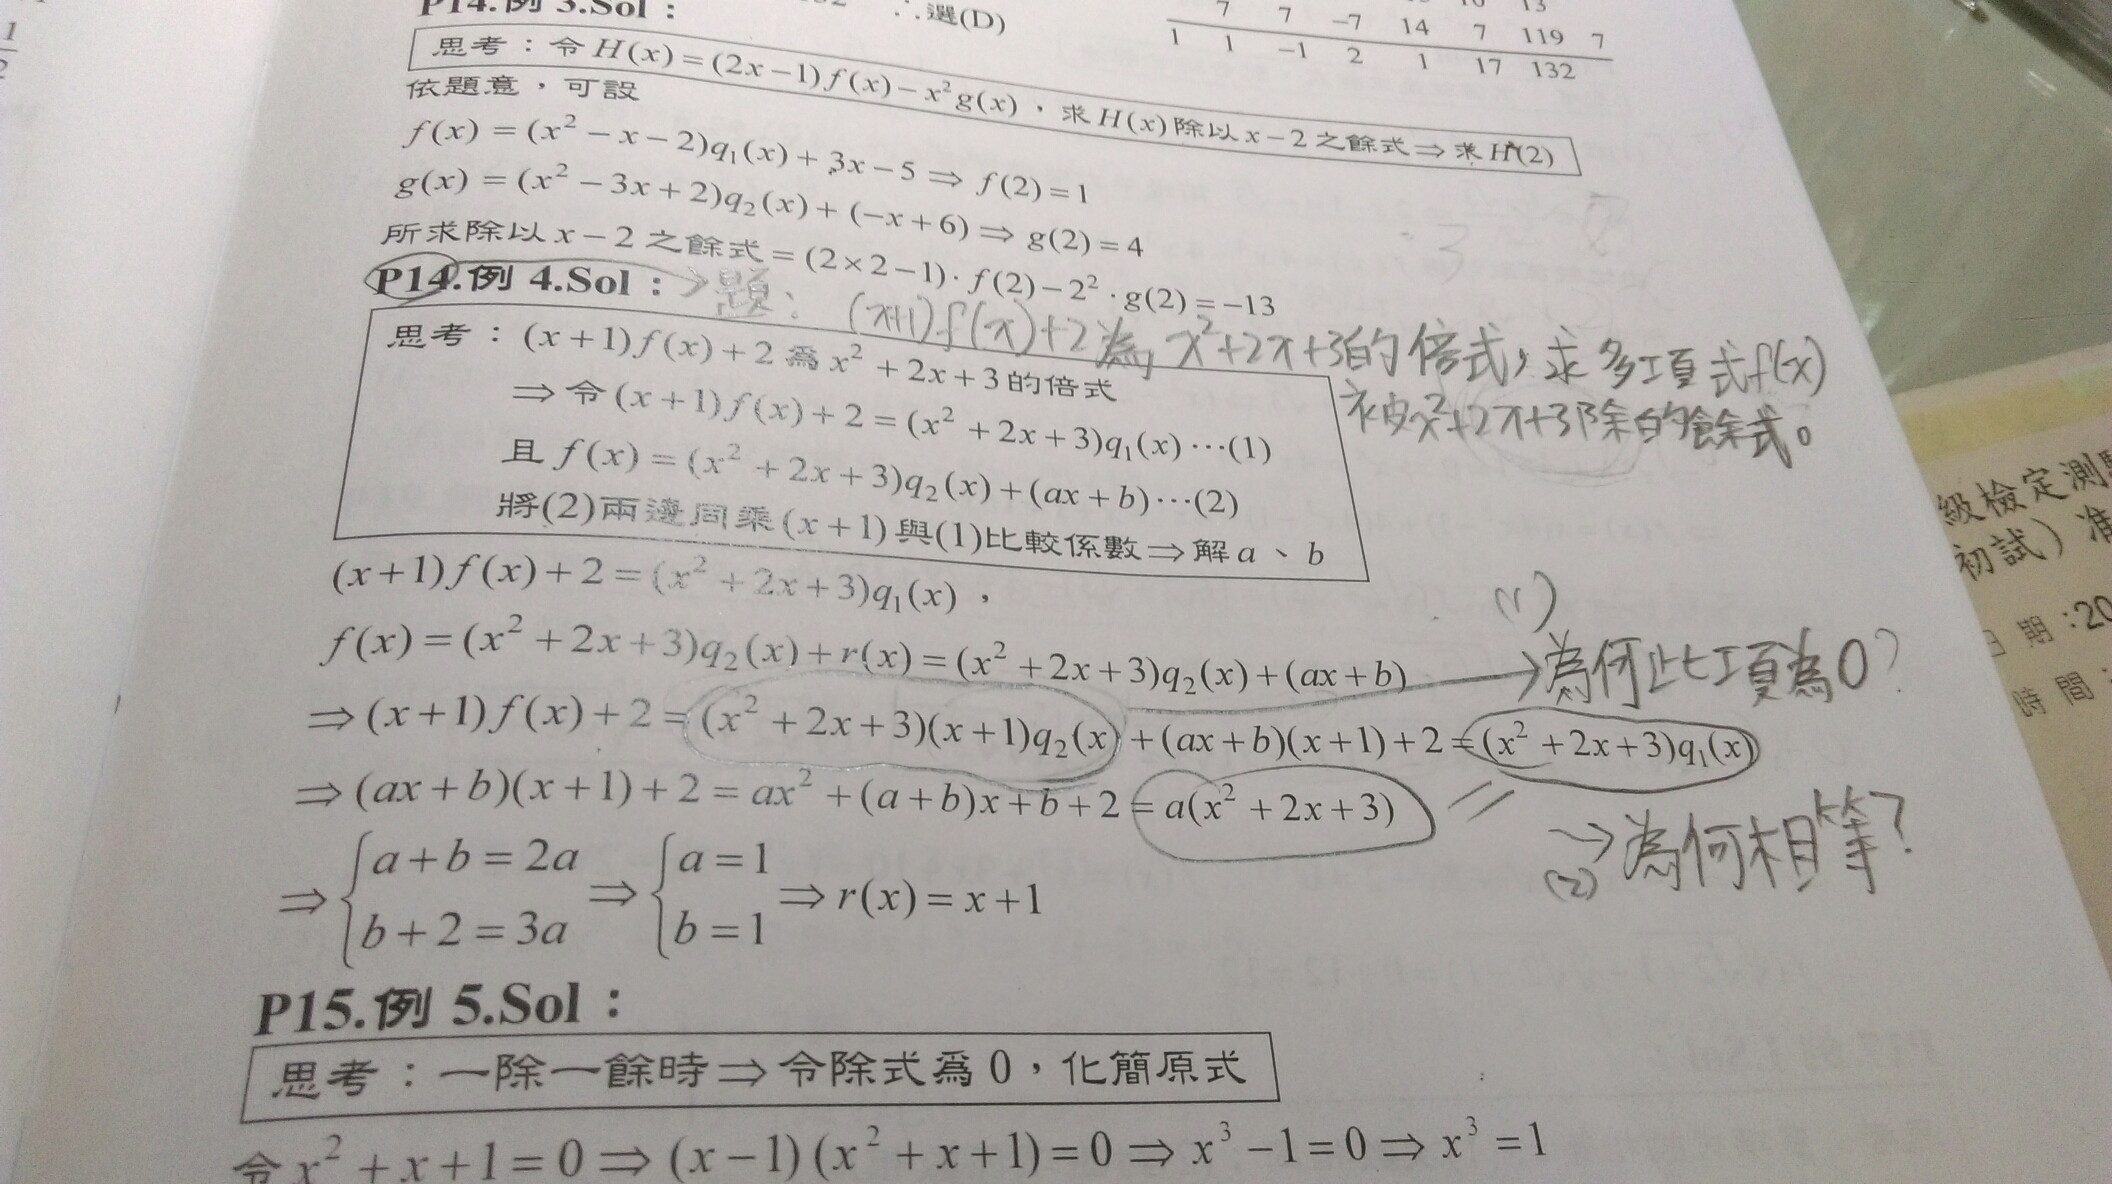 P14.例 3.Sol：
∴選(D)
7 7 −7 14 7 119 7
1 1 −1 2 1 17 132
思考：令 H(x) = (2x−1) f(x) − x² g(x)，求 H(x) 除以 x−2 之餘式 ⇒ 求 H(2)
依題意，可設
f(x) = (x² − x − 2)q₁(x) + 3x − 5 ⇒ f(2) = 1
g(x) = (x² − 3x + 2)q₂(x) + (−x + 6) ⇒ g(2) = 4
所求除以 x − 2 之餘式 = (2×2−1)· f(2) − 2² · g(2) = −13
P14.例 4.Sol：
題： (x+1)f(x)+2為 x²+2x+3的倍式，求多項式f(x)
被x²+2x+3除的餘式。
思考：(x+1) f(x) + 2 為 x² + 2x + 3 的倍式
⇒ 令 (x+1) f(x) + 2 = (x² + 2x + 3)q₁(x) ⋯(1)
且 f(x) = (x² + 2x + 3)q₂(x) + (ax + b) ⋯(2)
將(2)兩邊同乘 (x+1) 與(1)比較係數 ⇒ 解 a 、 b
(x+1) f(x) + 2 = (x² + 2x + 3)q₁(x) ，
(1)
f(x) = (x² + 2x + 3)q₂(x) + r(x) = (x² + 2x + 3)q₂(x) + (ax + b)
→為何此項為0?
⇒ (x+1) f(x) + 2 = (x² + 2x + 3)(x+1)q₂(x) + (ax + b)(x+1) + 2 = (x² + 2x + 3)q₁(x)
⇒ (ax + b)(x+1) + 2 = ax² + (a + b)x + b + 2 = a(x² + 2x + 3)
=
→為何相等?
(2)
⇒ { a + b = 2a ⇒ { a = 1 ⇒ r(x) = x + 1
b + 2 = 3a b = 1
P15.例 5.Sol：
思考：一除一餘時 ⇒ 令除式爲 0，化簡原式
令 x² + x + 1 = 0 ⇒ (x − 1) (x² + x + 1) = 0 ⇒ x³ − 1 = 0 ⇒ x³ = 1
級檢定測驗
初試）准
日 期 :20
時 間 :
1
2